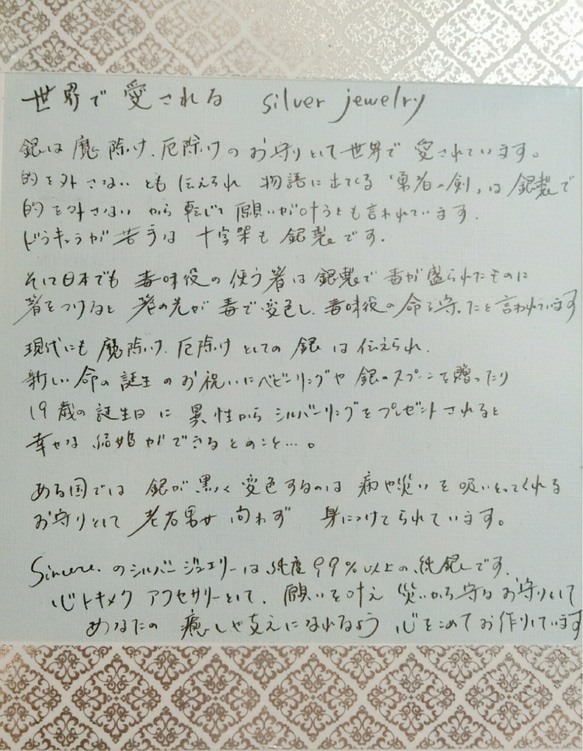 世界で愛される silver jewelry
銀は魔除け、厄除けのお守りとして世界で愛されています。
的を外さないとも伝えられ 物語に出てくる「勇者の剣」は銀製で
的を外さない から転じて願いが叶うとも言われています.
ドラキュラが苦手な十字架も銀製です.
そして日本でも毒味役の使う箸は銀製で毒が盛られたものに
箸をつけると箸の先が毒で変色し、毒味役の命を守ったと言われています
現代にも魔除け、厄除けとしての銀は伝えられ、
新しい命の誕生のお祝いにベビーリングや銀のスプーンを贈ったり
19歳の誕生日に異性からシルバーリングをプレゼントされると
幸せな結婚ができるとのこと…。
ある国では銀が黒く変色するのは病や災いを吸いとってくれる
お守りとして老若男女問わず 身につけてられています。
Sincere.のシルバージュエリーは純度99%以上の純銀です.
心トキメクアクセサリーとして、願いを叶え災いから守るお守りとして
あなたの癒しや支えになれるよう心をこめてお作りしています